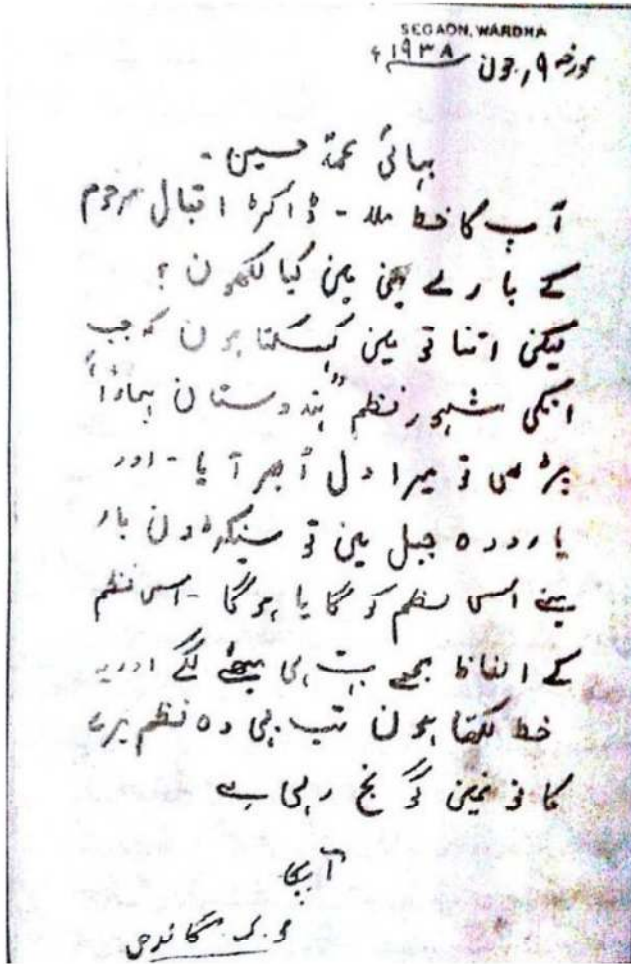 SEGAON, WARDHA
مورخہ ۹ جون ۱۹۳۸ء
بھائی محمد حسین -
آپ کا خط ملا - ڈاکٹر اقبال مرحوم
کے بارے میں میں کیا لکھوں ؟
لیکن اتنا تو میں کہہ سکتا ہوں کہ جب
انکی مشہور نظم "ہندوستان ہمارا"
پڑھی تو میرا دل اُبھر آیا - اور
یارودہ جیل میں تو سینکڑوں بار
مینے اس نظم کو گایا ہوگا - اس نظم
کے الفاظ مجھے بہت ہی میٹھے لگے اور یہ
خط لکھتا ہوں تب بھی وہ نظم میرے
کانوں میں گونج رہی ہے
آپکا
مو. ک. گاندھی